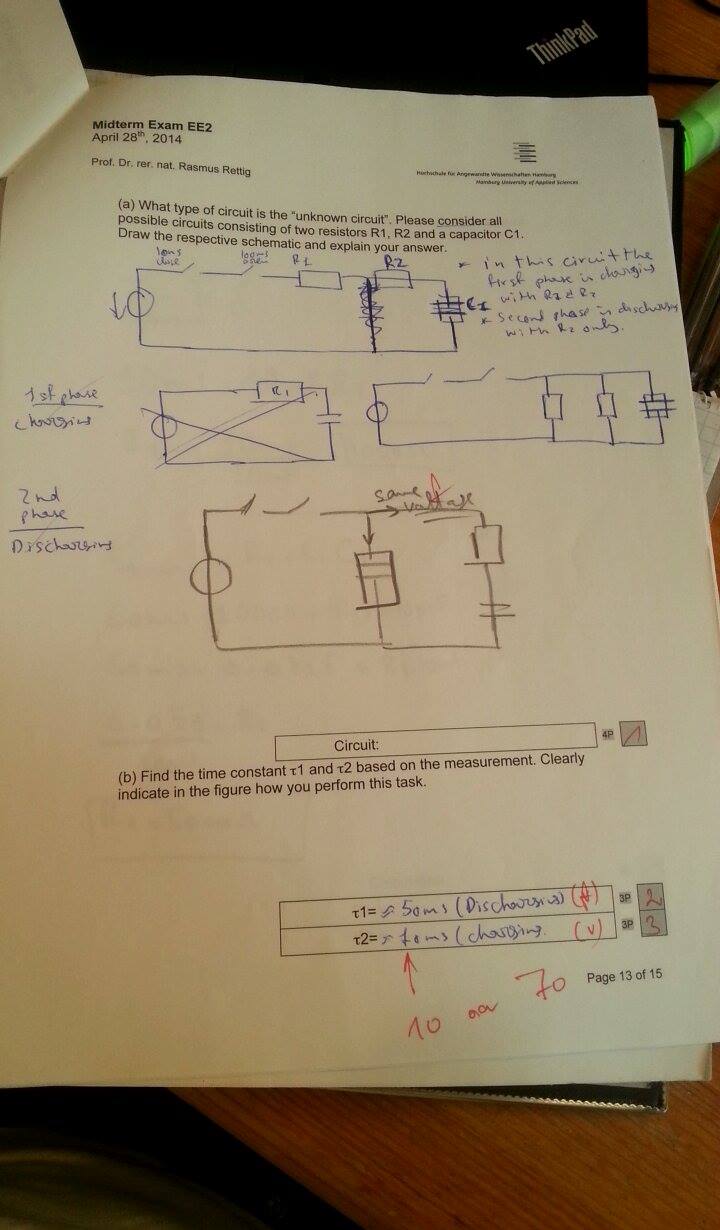 ThinkPad
Midterm Exam EE2
April 28th, 2014
Prof. Dr. rer. nat. Rasmus Rettig
Hochschule für Angewandte Wissenschaften Hamburg
Hamburg University of Applied Sciences
(a) What type of circuit is the "unknown circuit". Please consider all
possible circuits consisting of two resistors R1, R2 and a capacitor C1.
Draw the respective schematic and explain your answer.
10ms
close
100ms
open
R1
R2
C1
* in this circuit the
first phase is charging
with R1 & R2
* Second phase is discharging
with R2 only.
1st phase
charging
R1
2nd
phase
Discharging
same
voltage
Circuit:
4P
1
(b) Find the time constant τ1 and τ2 based on the measurement. Clearly
indicate in the figure how you perform this task.
τ1= ≈ 50ms (Discharging) 3P 2
τ2= ≈ 10ms (charging. (v) 3P 3
10 or 70
Page 13 of 15